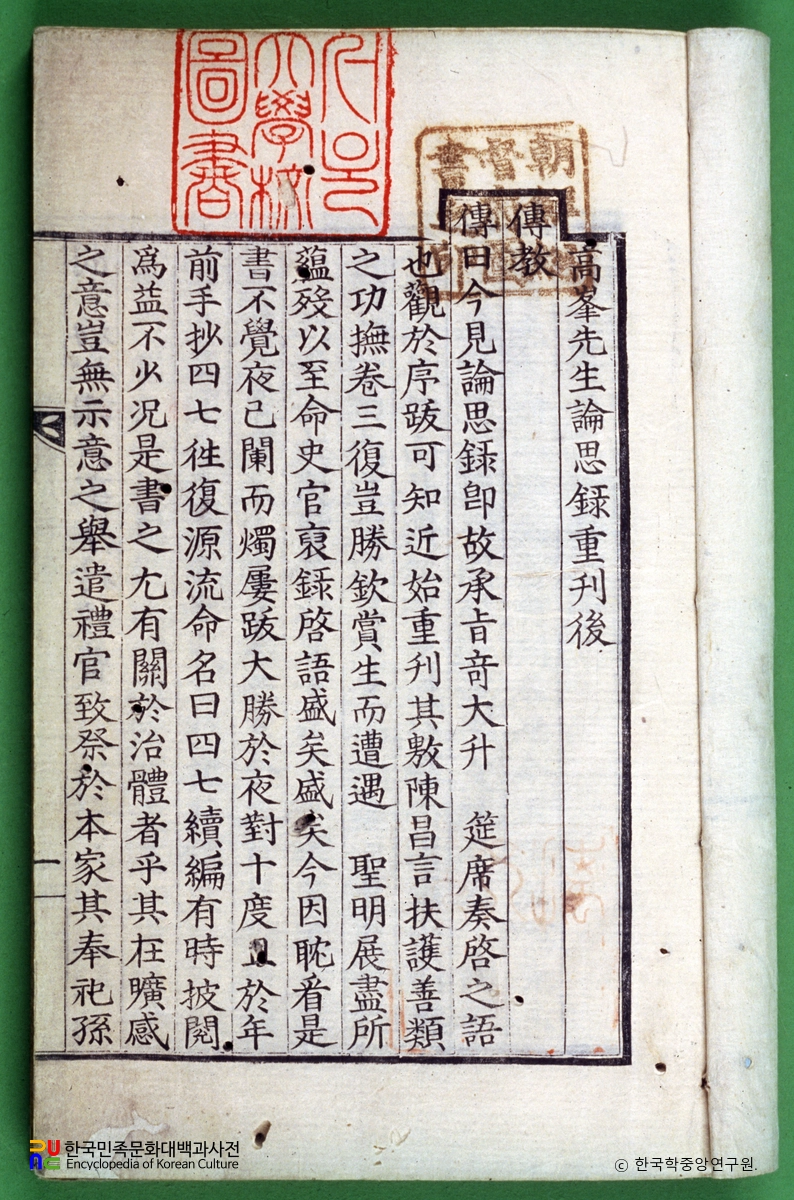 高峯先生論思錄重刋後
傳敎
傳曰今見論思錄卽故承旨竒大升 筵席奏啓之語
也觀於序跋可知近始重刋其敷陳昌言扶護善類
之功撫卷三復豈勝欽賞生而遭遇 聖明展盡所
蘊歿以至命史官裒錄啓語盛矣盛矣今因耽看是
書不覺夜已闌而燭屢跋大勝於夜對十度且於年
前手抄四七徃復源流命名曰四七續編有時披閱
爲益不少况是書之尤有關於治體者乎其在曠感
之意豈無示意之舉遣禮官致祭於本家其奉祀孫
大學校
圖書
朝
督
書
一
한국민족문화대백과사전
Encyclopedia of Korean Culture
© 한국학중앙연구원.